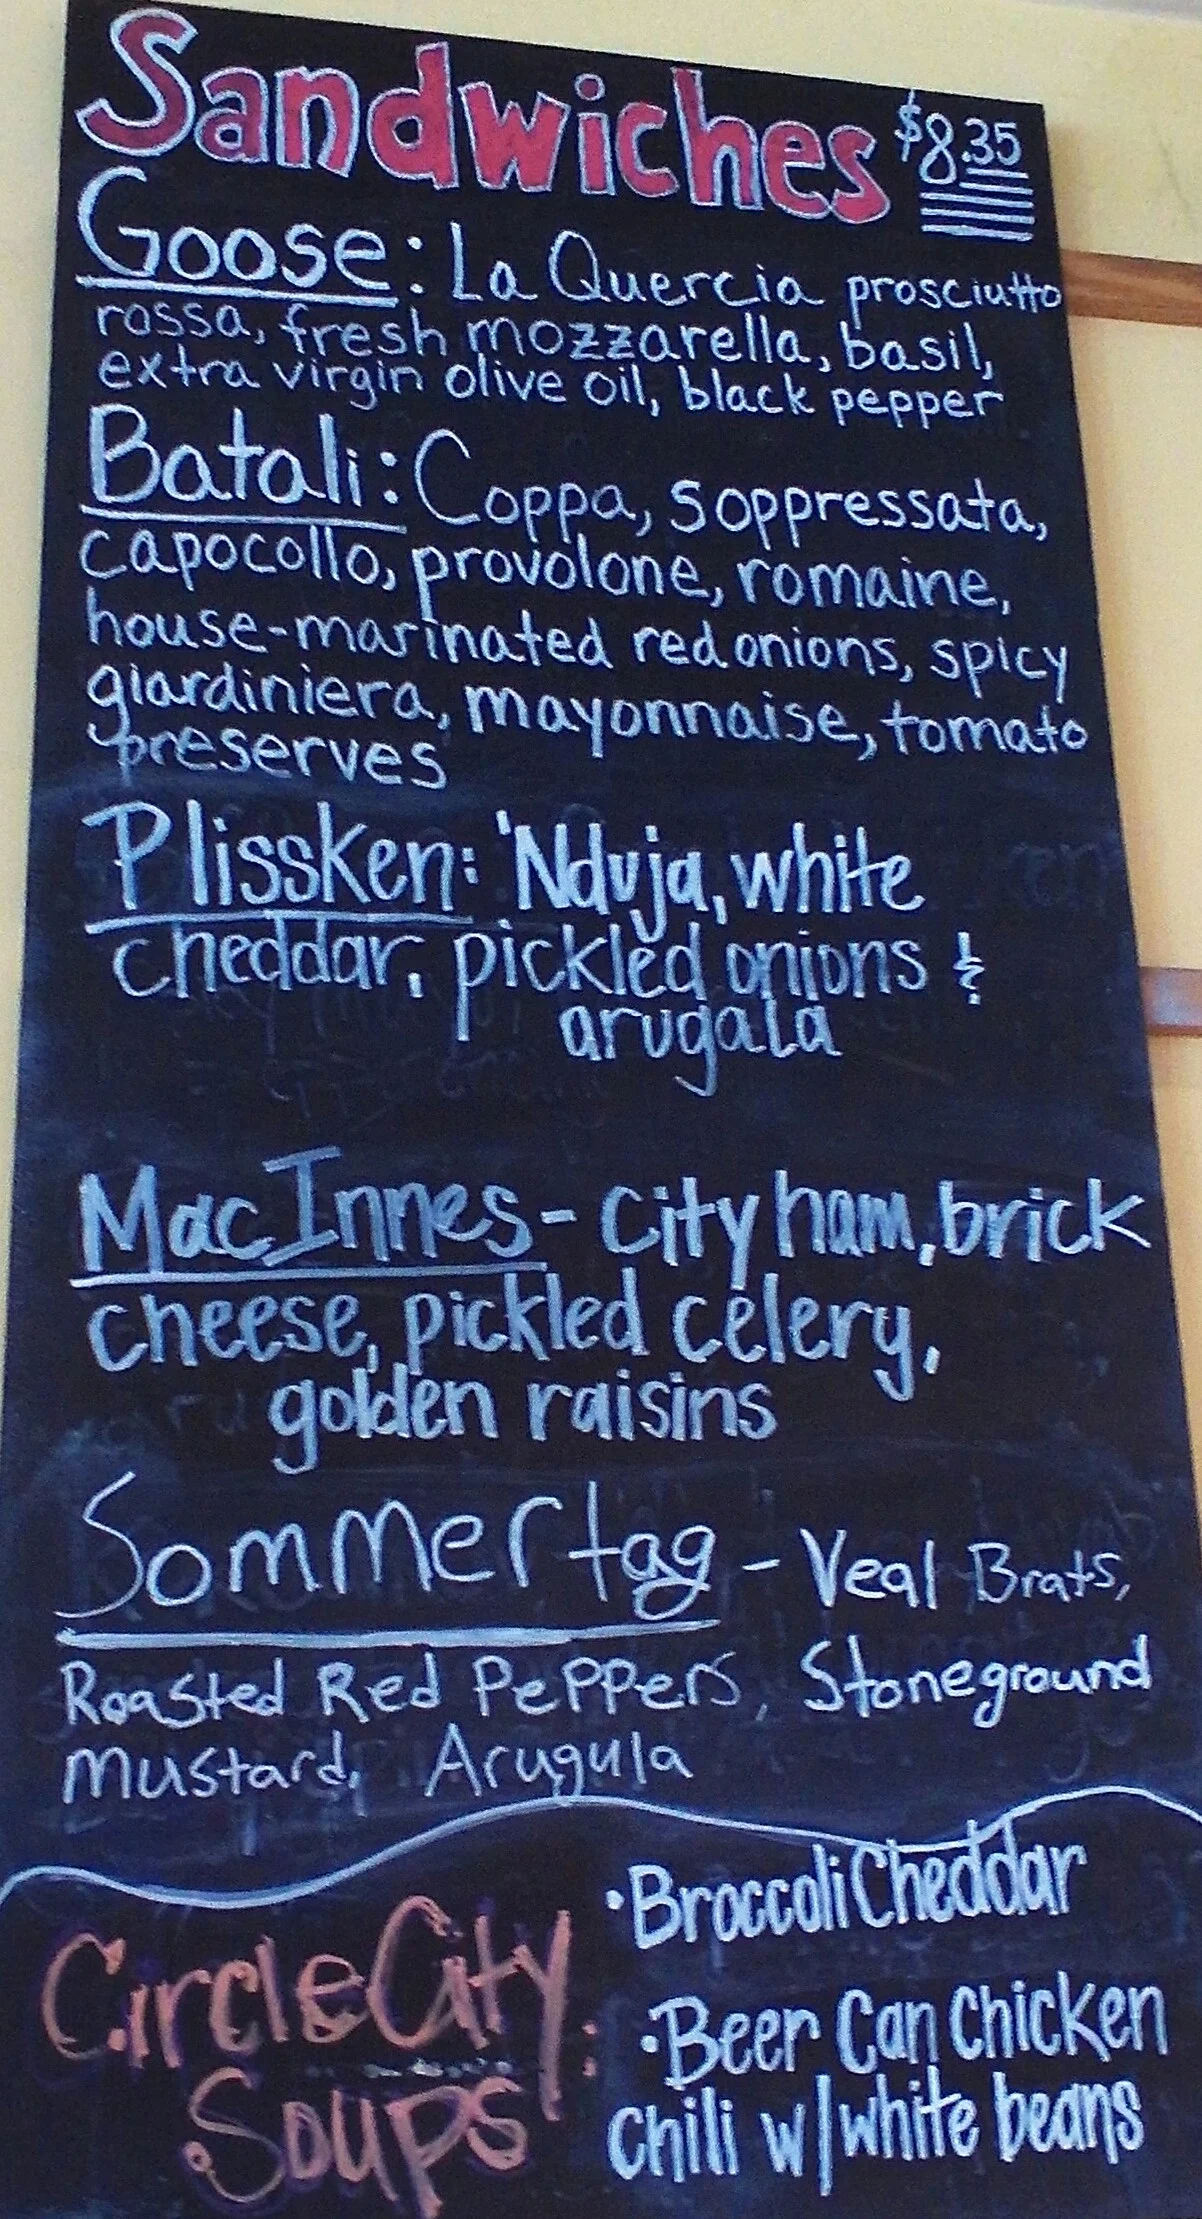 Sandwiches $8.35
Goose: La Quercia prosciutto
rossa, fresh mozzarella, basil,
extra virgin olive oil, black pepper
Batali: Coppa, soppressata,
capocollo, provolone, romaine,
house-marinated red onions, spicy
giardiniera, mayonnaise, tomato
preserves
Plissken: 'Nduja, white
cheddar, pickled onions &
arugala
MacInnes - city ham, brick
cheese, pickled celery,
golden raisins
Sommertag - Veal Brats,
Roasted Red Peppers, Stoneground
Mustard, Arugula
Circle City
Soups:
• Broccoli Cheddar
• Beer Can Chicken
Chili w/white beans